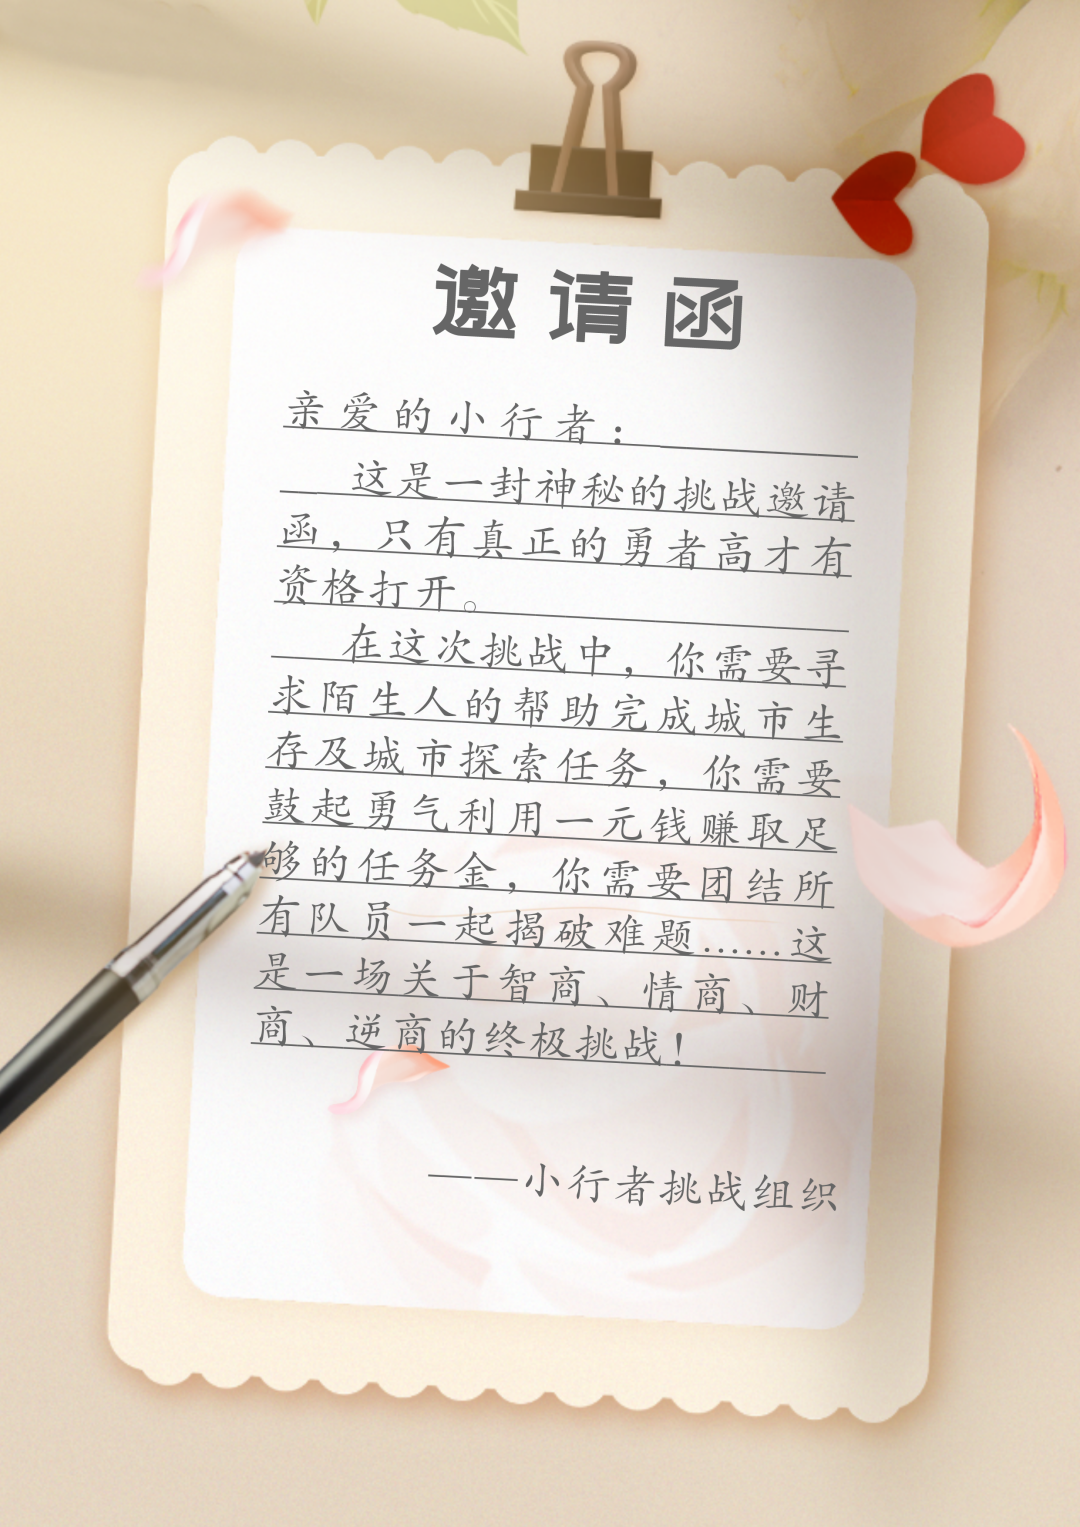 邀请函
亲爱的小行者：
这是一封神秘的挑战邀请
函，只有真正的勇者高才有
资格打开。
在这次挑战中，你需要寻
求陌生人的帮助完成城市生
存及城市探索任务，你需要
鼓起勇气利用一元钱赚取足
够的任务金，你需要团结所
有队员一起揭破难题……这
是一场关于智商、情商、财
商、逆商的终极挑战！
——小行者挑战组织